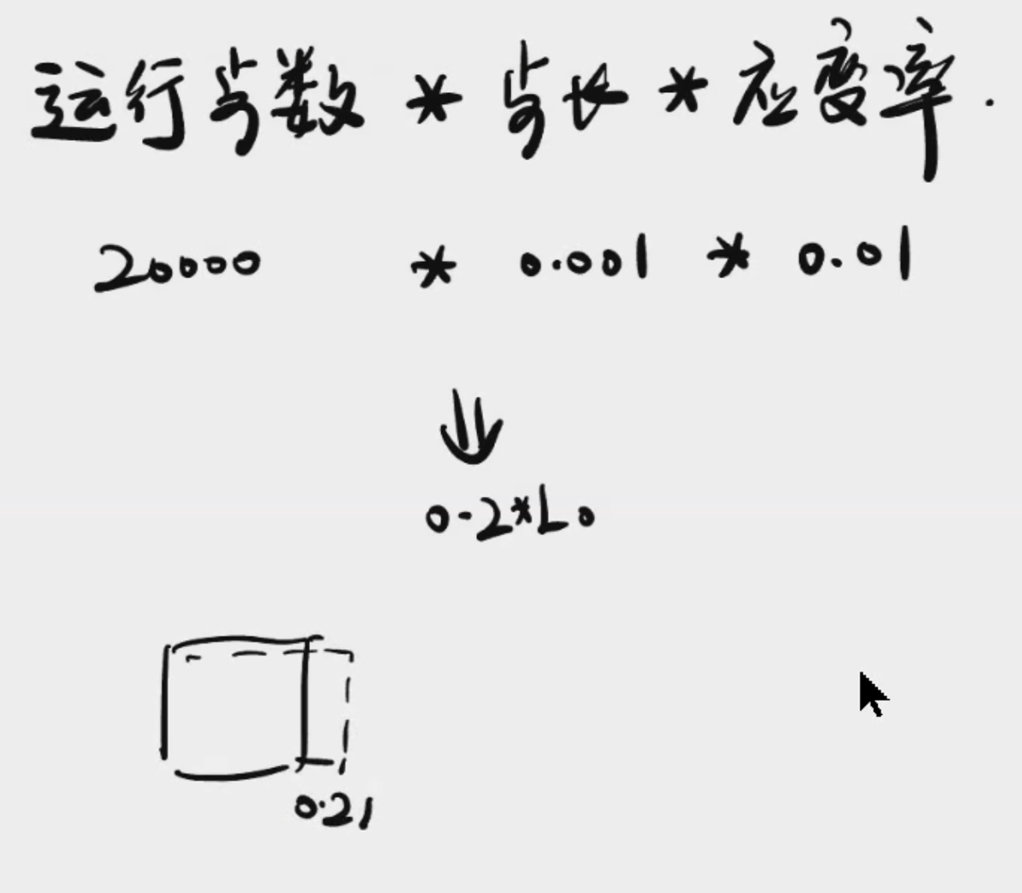 运行步数 * 步长 * 应变率.
20000 * 0.001 * 0.01
0.2*L0
0.21